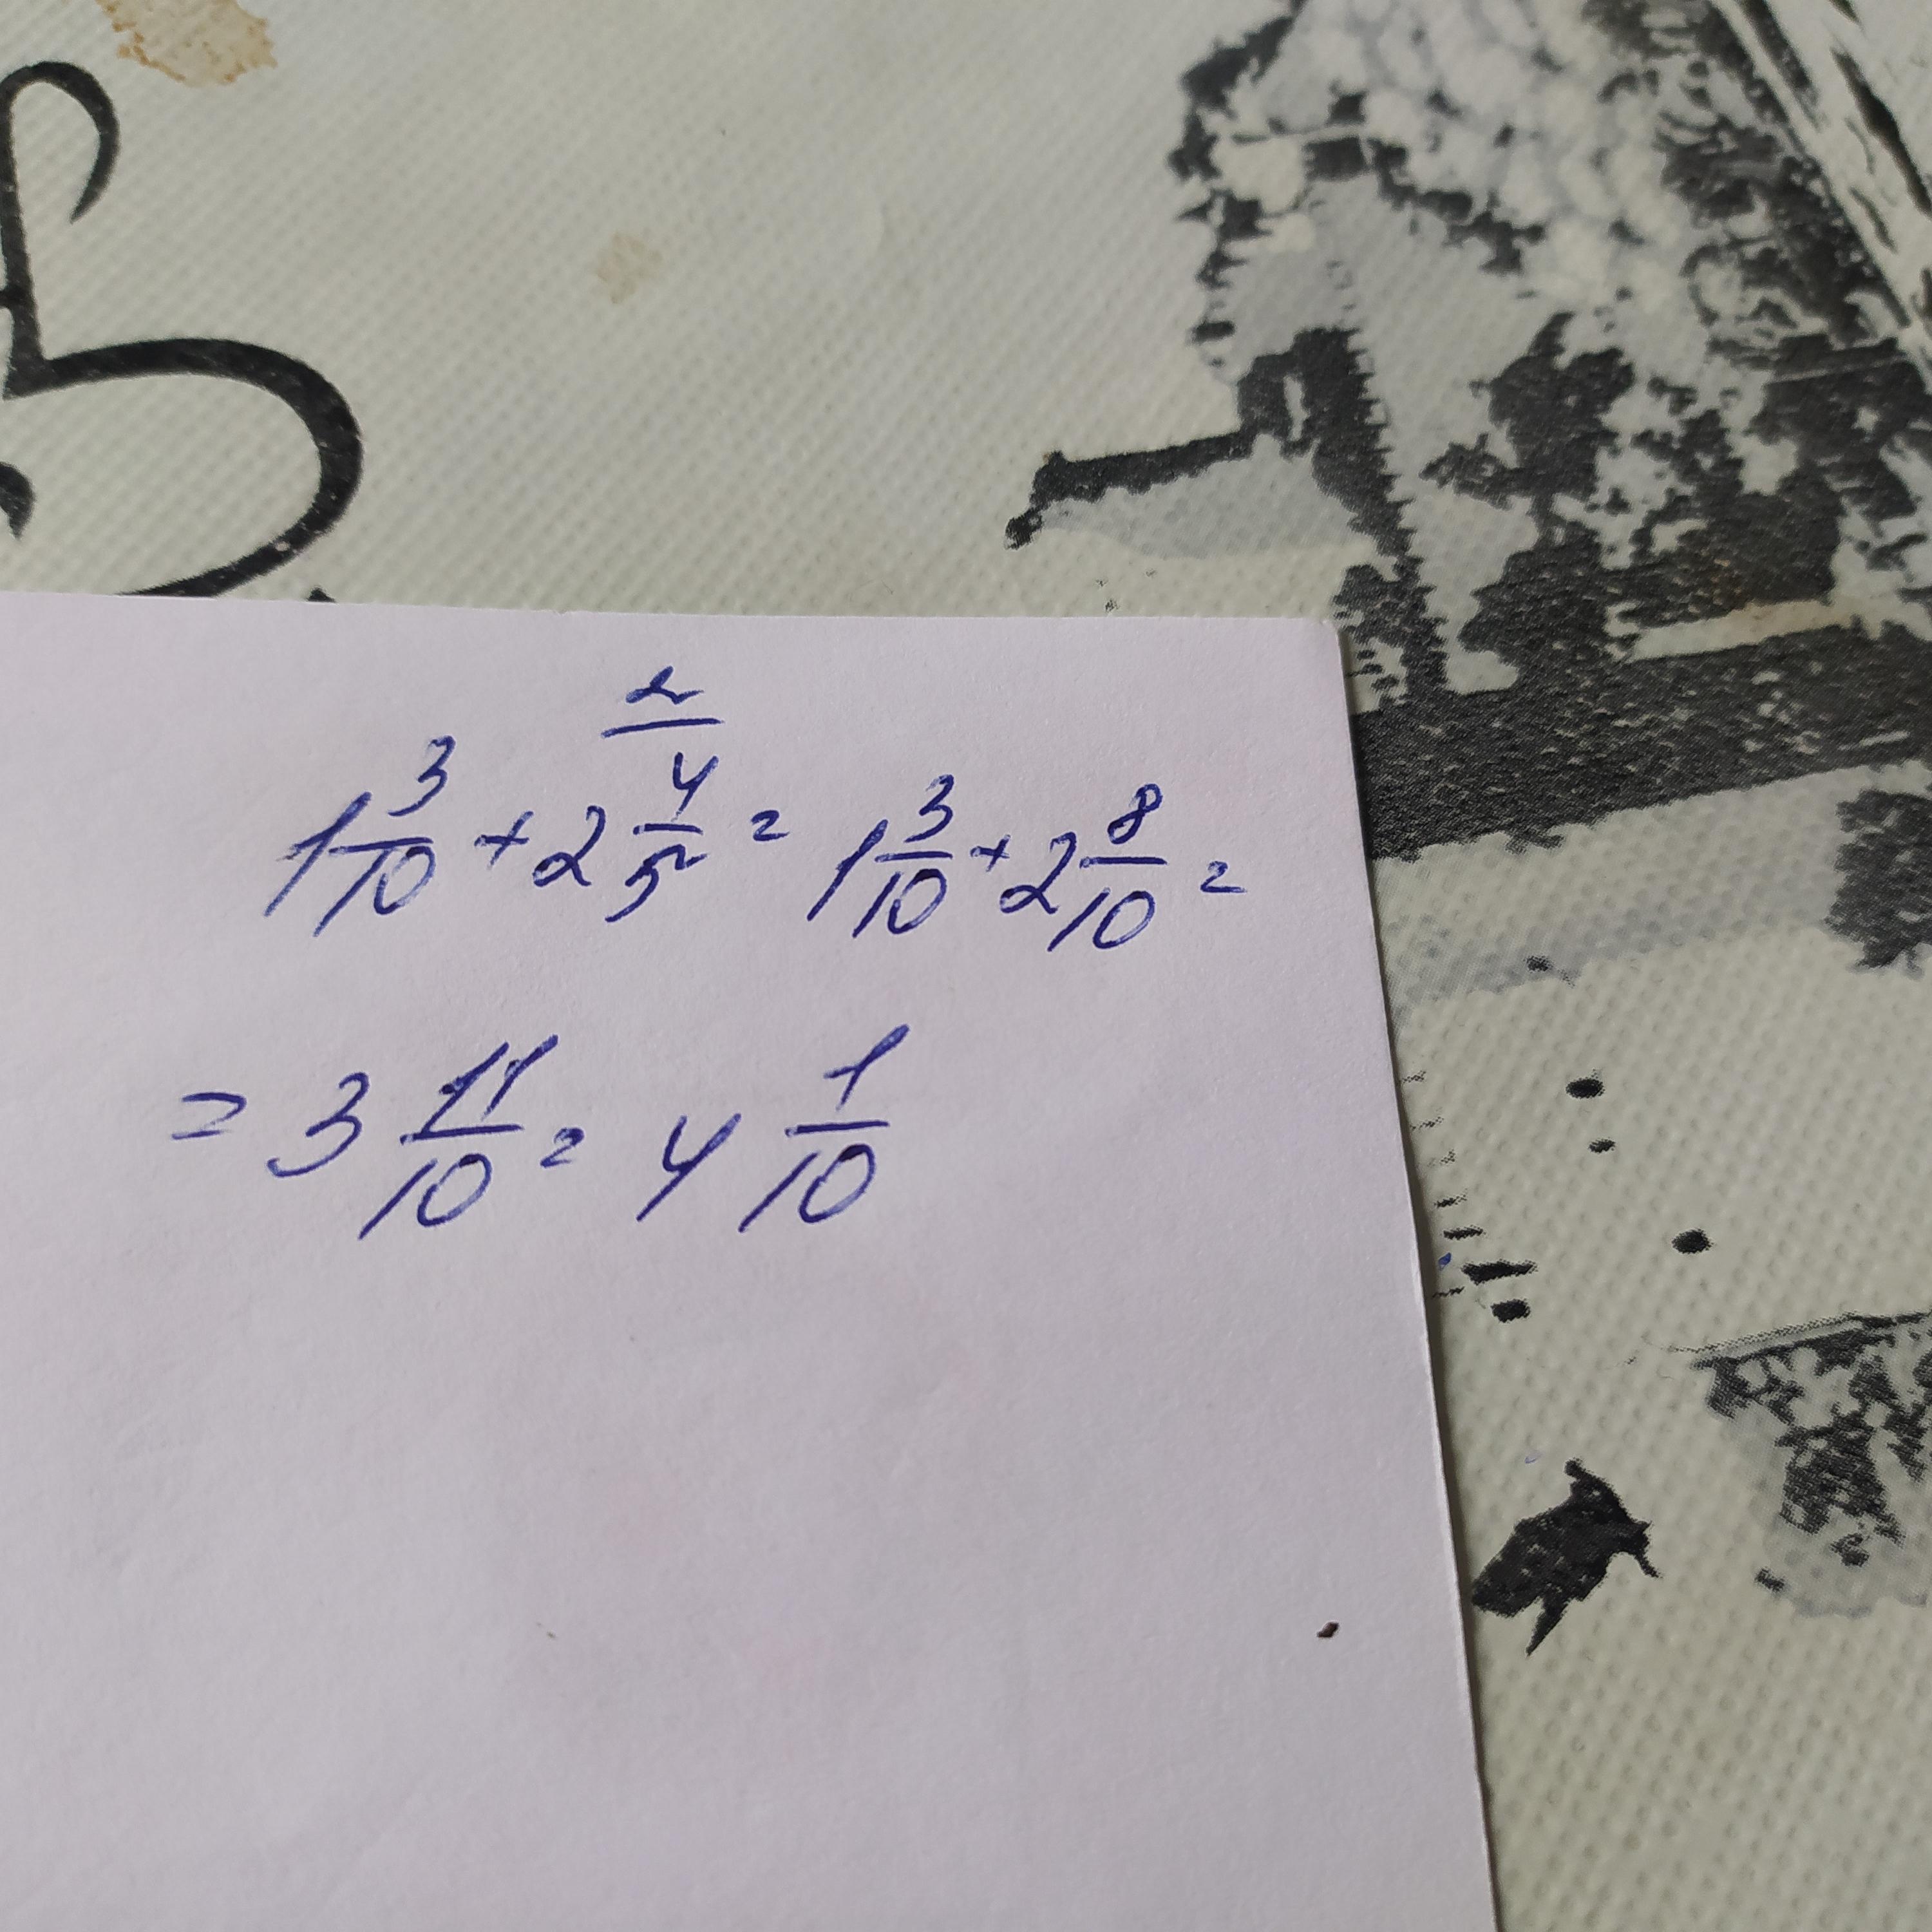 2
1 3/10 + 2 4/5 = 1 3/10 + 2 8/10 =
= 3 11/10 = 4 1/10